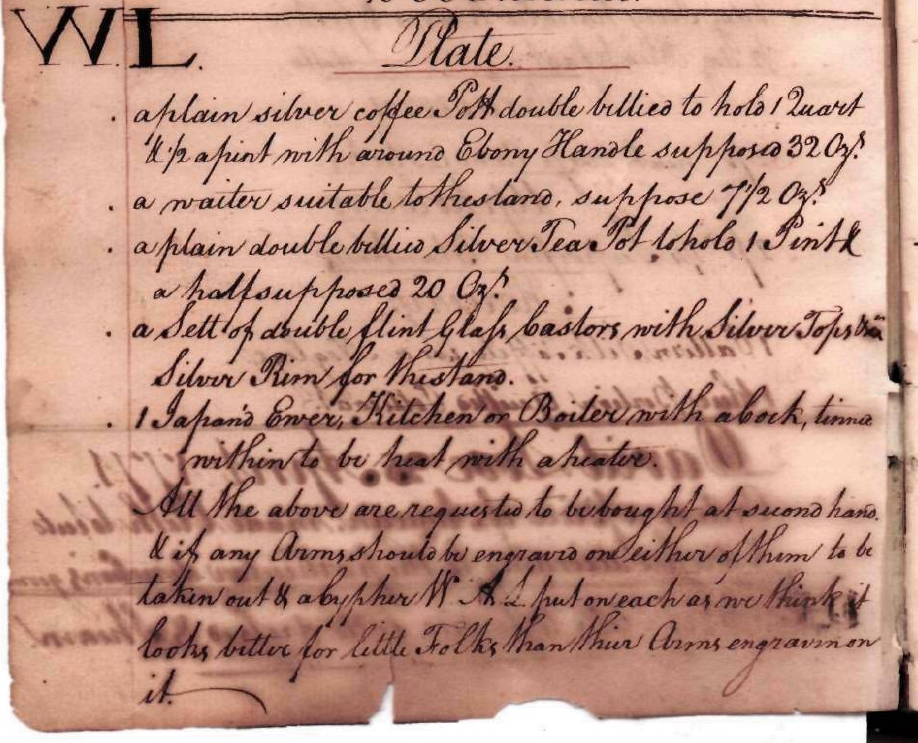 W.L.
Plate.
. a plain silver coffee Pott double bellied to hold 1 Quart
& 1/2 a pint with a round Ebony Handle supposed 32 Ozs.
. a waiter suitable to the stand, suppose 7 1/2 Ozs.
. a plain double bellied Silver Tea Pot to hold 1 Pint &
a half supposed 20 Ozs.
. a Sett of double flint Glass Castors with Silver Tops
Silver Rim for the stand.
. 1 Japan'd Ewer, Kitchen or Boiler with a Cock, tinned
within to be heat with a heater.
All the above are requested to be bought at second hand.
& if any Arms should be engraved on either of them to be
taken out & a Cypher W A L put on each as we think it
looks better for little Folks than thier Arms engraven on
it.